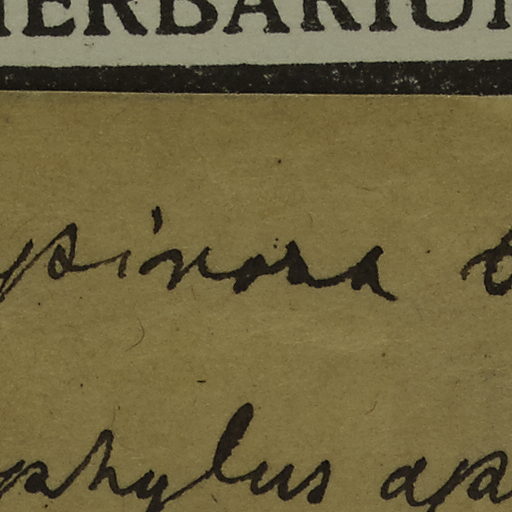 HERBARIUM
spinosa
phylus ap